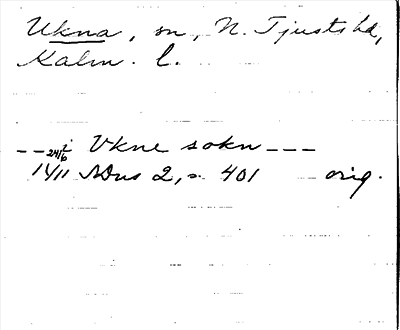 Ukna, sn, N. Tjusts hd,
Kalm. l.
-- i Vkne sokn ---
24/6
1411 SDns 2, s. 401 orig.